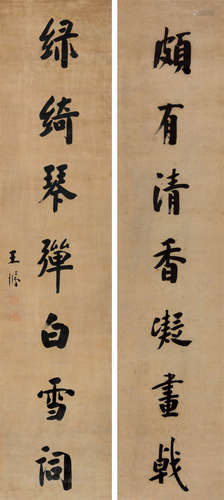 頗有清香凝畫戟
緑綺琴彈白雪詞
王